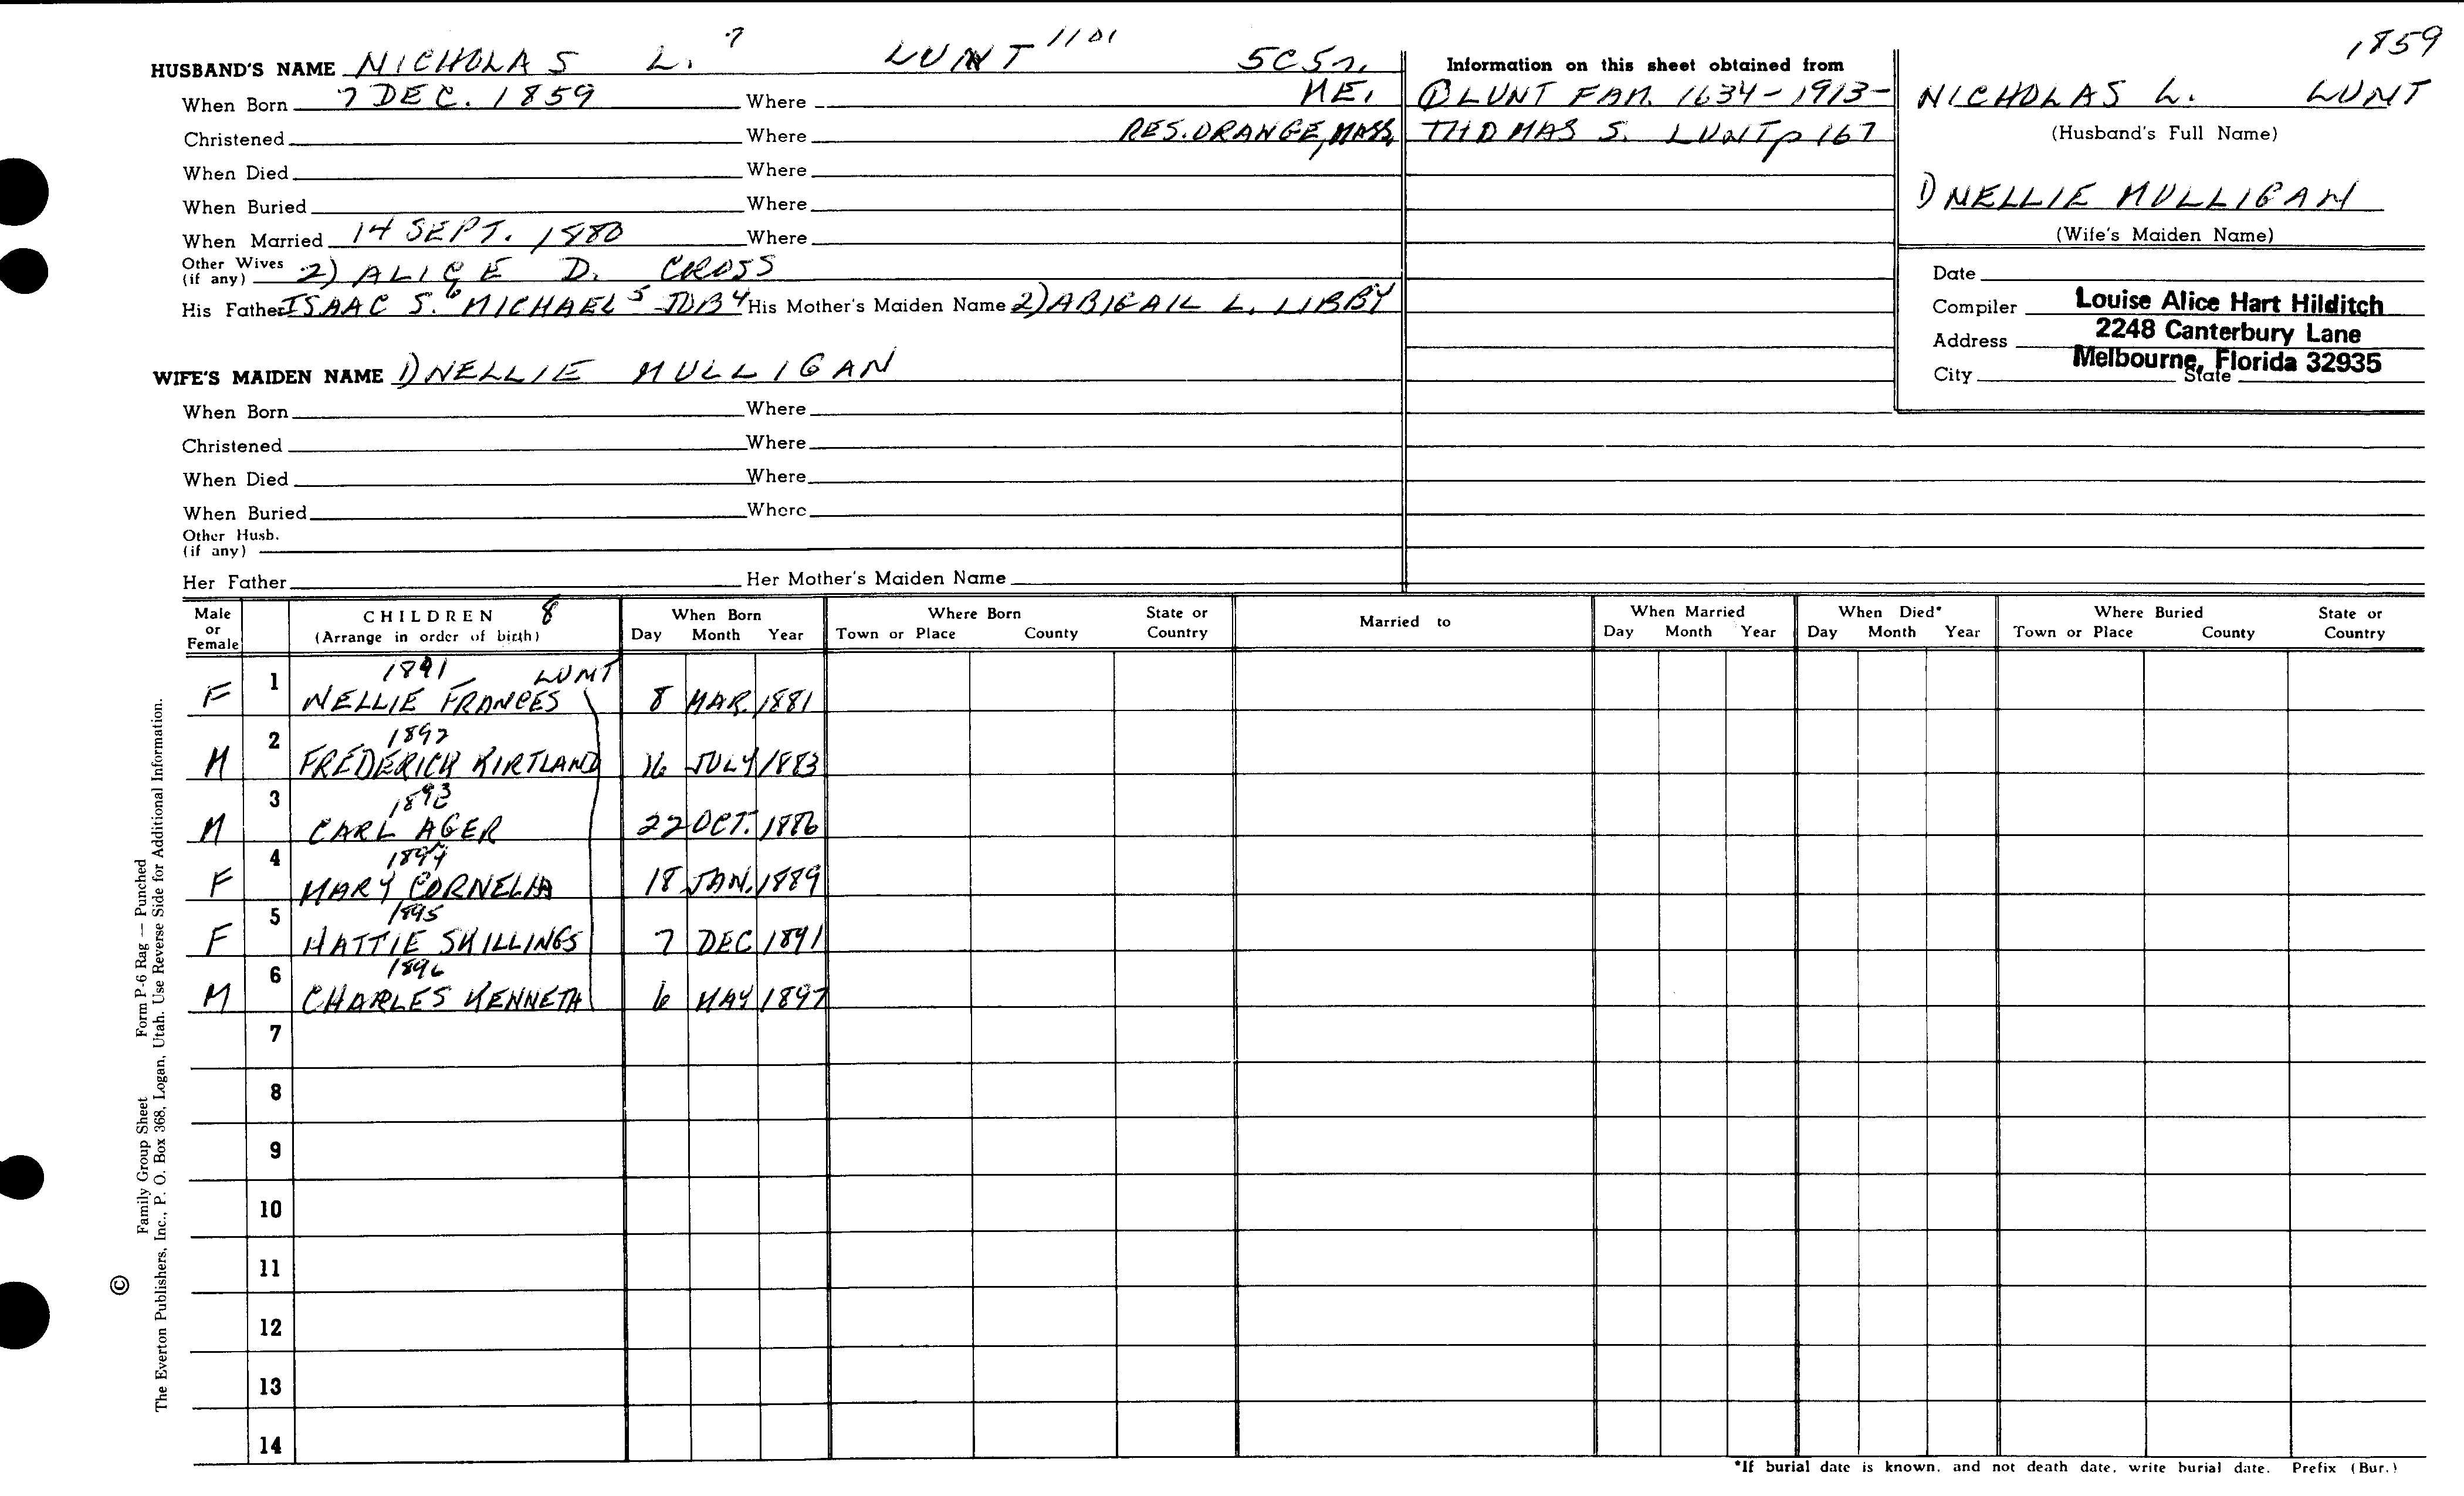 1859
HUSBAND'S NAME NICHOLAS L. 7 LUNT 1101 5C5r.
When Born 7 DEC. 1859 Where ME.
Christened Where RES. ORANGE, MASS.
When Died Where
When Buried Where
When Married 14 SEPT. 1880 Where
Other Wives (if any) 2) ALICE D. CROSS
His Father ISAAC S. 6 MICHAEL 5 JOB 4 His Mother's Maiden Name 2) ABIGAIL L. LIBBY
WIFE'S MAIDEN NAME 1) NELLIE MULLIGAN
When Born Where
Christened Where
When Died Where
When Buried Where
Other Husb. (if any)
Her Father Her Mother's Maiden Name
Information on this sheet obtained from
① LUNT FAM. 1634-1913-
THOMAS S. LUNT p 167
NICHOLAS L. LUNT
(Husband's Full Name)
1) NELLIE MULLIGAN
(Wife's Maiden Name)
Date
Compiler Louise Alice Hart Hilditch
Address 2248 Canterbury Lane
City Melbourne, Florida 32935 State
Male or Female CHILDREN 8 When Born Where Born State or Country Married to When Married When Died* Where Buried State or Country
(Arrange in order of birth) Day Month Year Town or Place County Day Month Year Day Month Year Town or Place County
1891 LUNT
F 1 NELLIE FRANCES 8 MAR. 1881
1892
M 2 FREDERICK KIRTLAND 16 JULY 1883
1893
M 3 CARL AGER 22 OCT. 1886
1894
F 4 MARY CORNELIA 18 JAN. 1889
1895
F 5 HATTIE SKILLINGS 7 DEC 1891
1896
M 6 CHARLES KENNETH 6 MAY 1897
7
8
9
10
11
12
13
14
*If burial date is known, and not death date, write burial date. Prefix (Bur.)
© Family Group Sheet Form P-6 Rag — Punched
The Everton Publishers, Inc., P. O. Box 368, Logan, Utah. Use Reverse Side for Additional Information.